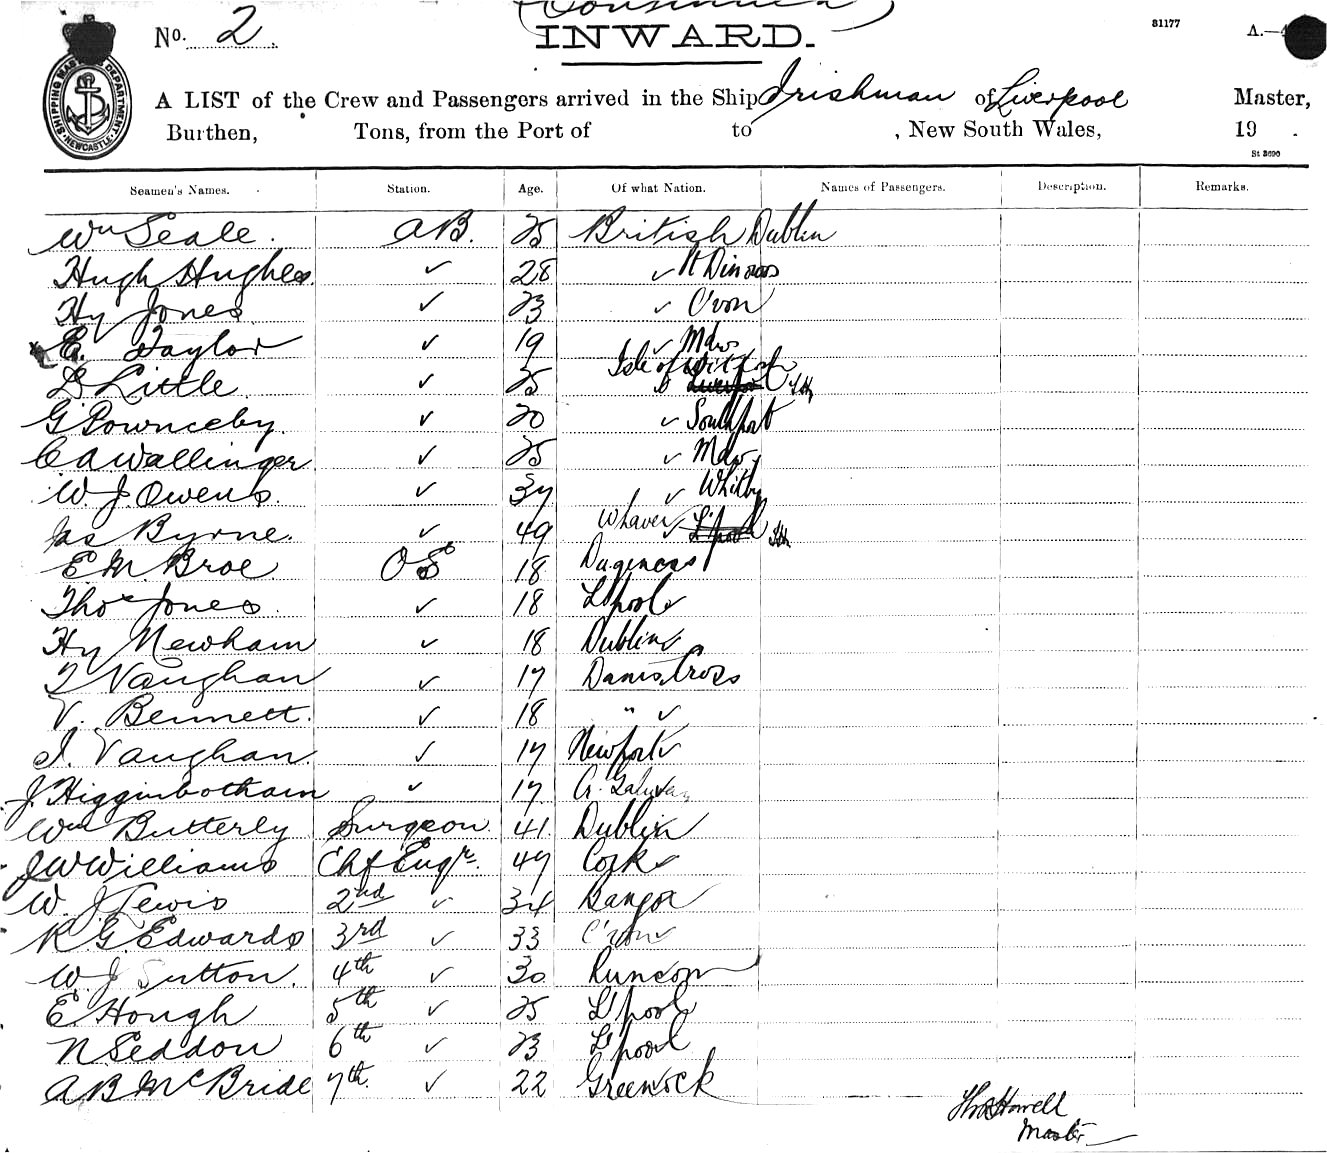 No. 2
INWARD.
81177
A.—
SHIPPING MASTERS DEPARTMENT
NEWCASTLE
A LIST of the Crew and Passengers arrived in the Ship Irishman of Liverpool Master,
Burthen, Tons, from the Port of to , New South Wales, 19 .
St 3690
Seamen's Names. Station. Age. Of what Nation. Names of Passengers. Description. Remarks.
Wm Seale. AB. 25 British Dublin
Hugh Hughes. ✓ 28 ✓
Hy Jones ✓ 23 ✓ C'von
E. Taylor ✓ 19 ✓
Isle of
D Little ✓ 25
G Pownceby. ✓ 20 ✓ Southport
C A Wallinger ✓ 25 ✓
W. J. Owens. ✓ 37 ✓ Whitby
Jas Byrne. ✓ 49 L'pool
E. M. Broe OS 18
Thos Jones ✓ 18 L'pool ✓
Hy Newham ✓ 18 Dublin ✓
T Vaughan ✓ 17
V. Bennett. ✓ 18 " ✓
I. Vaughan. ✓ 17 Newport ✓
J. Higginbotham ✓ 17
Wm Butterly Surgeon. 41. Dublin
J W Williams Chf Engr. 47 Cork ✓
W. J Lewis 2nd ✓ 34 Bangor
R. G. Edwards 3rd ✓ 33 C'von ✓
W. J Sutton. 4th ✓ 30 Runcorn
E. Hough 5th ✓ 25 L'pool
N Seddon 6th ✓ 23 L'pool
A B McBride 7th. ✓ 22 Greenock
Thos Howell
Master